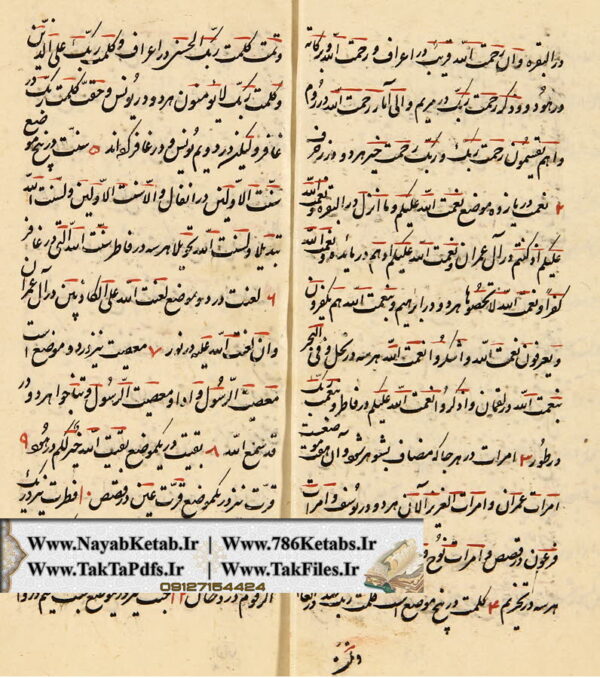 در البقره و ان رحمت الله قریب در اعراف و رحمت الله و برکاته
در هود و ذکر رحمت ربک در مریم و الی آثار رحمت الله در روم
و اهم یقسمون رحمت ربک و رحمت ربک خیر هر دو در زخرف
۲ نعمت در یازده موضع نعمت الله علیکم و ما انزل در البقره و نعمت الله
علیکم اذ کنتم در آل عمران و نعمت الله علیکم اذ هم در مائده و نعمت الله
کفرا و نعمت الله لا تحصوها هر دو در ابراهیم و بنعمت الله هم یکفرون
و یعرفون نعمت الله و اشکروا نعمت الله هر سه در نحل و فی البحر
بنعمت الله در لقمان و اذکروا نعمت الله علیکم در فاطر و بنعمت ربک
در طور ۳ امرات در هر جا که مضاف بشوهر شود و آن هفت موضعست
امرات عمران و امرات العزیز الآن هر دو در یوسف و امرات
فرعون در قصص و امرات نوح و
هر سه در تحریم ۴ کلمت در پنج موضع است کلمت ربک
و تمت کلمت ربک الحسنی در اعراف و کلمت ربک علی الذین
و کلمت ربک لا یؤمنون هر دو در یونس و حقت کلمت ربک در
غافر و لیکن در دویم یونس و در غافر ۵ سنت در پنج موضع
سنت الاولین در انفال و الا سنت الاولین و لسنت الله
تبدیلا و لسنت الله تحویلا هر سه در فاطر سنت الله التی در غافر
۶ لعنت در دو موضع لعنت الله علی الکاذبین در آل عمران
و ان لعنت الله علیه در نور ۷ معصیت نیز در دو موضع است
معصیت الرسول و اذا و معصیت الرسول و تناجوا هر دو در
قد سمع الله ۸ بقیت در یکموضع بقیت الله خیر لکم در هود ۹
قرت نیز در یکموضع قرت عین در قصص ۱۰ فطرت نیز در یک
الزقوم در دخان ۱۲ جنت نیز در یکموضع
Www.NayabKetab.Ir | Www.786Ketabs.Ir
Www.TakTaPdfs.Ir | Www.TakFiles.Ir
09127154424